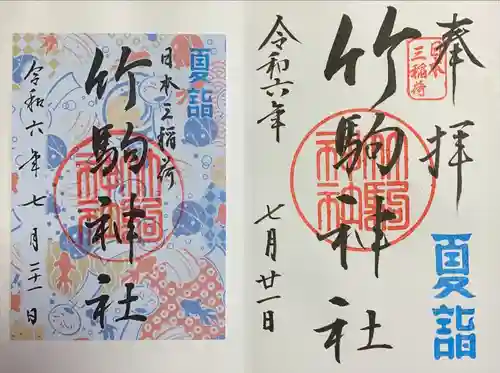 奉拝
日本
三稲荷
夏詣
竹駒神社
竹駒
神社
令和六年
七月廿一日
夏詣
日本三稲荷
竹駒神社
竹駒
神社
令和六年七月二十一日